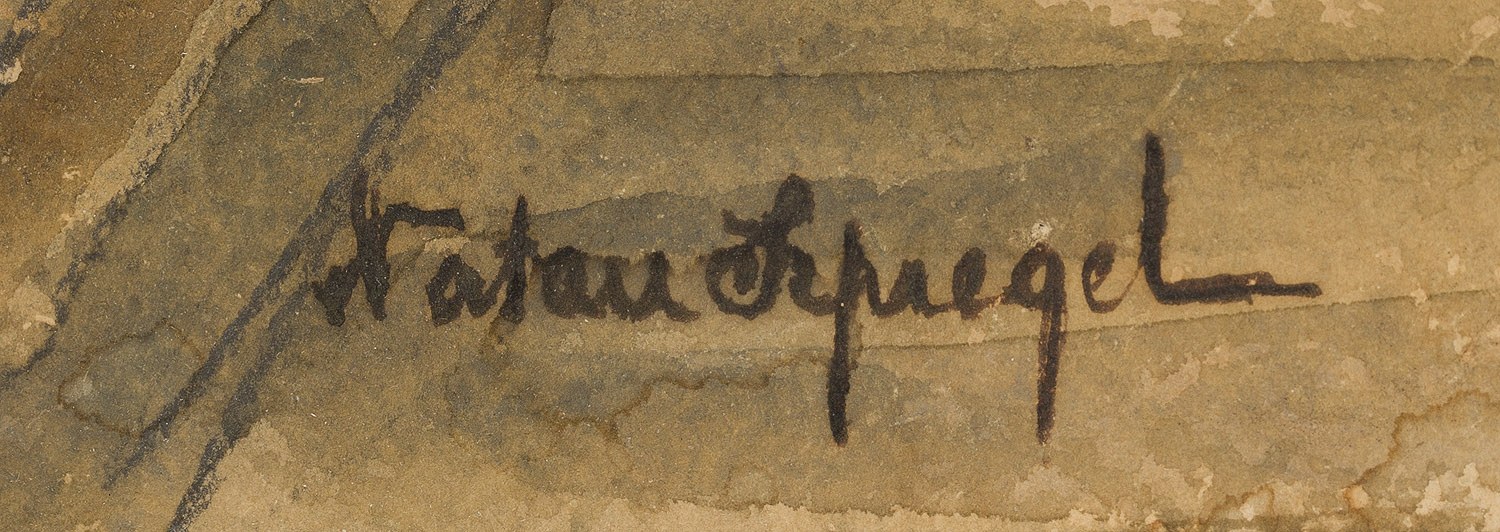 Natan Spiegel